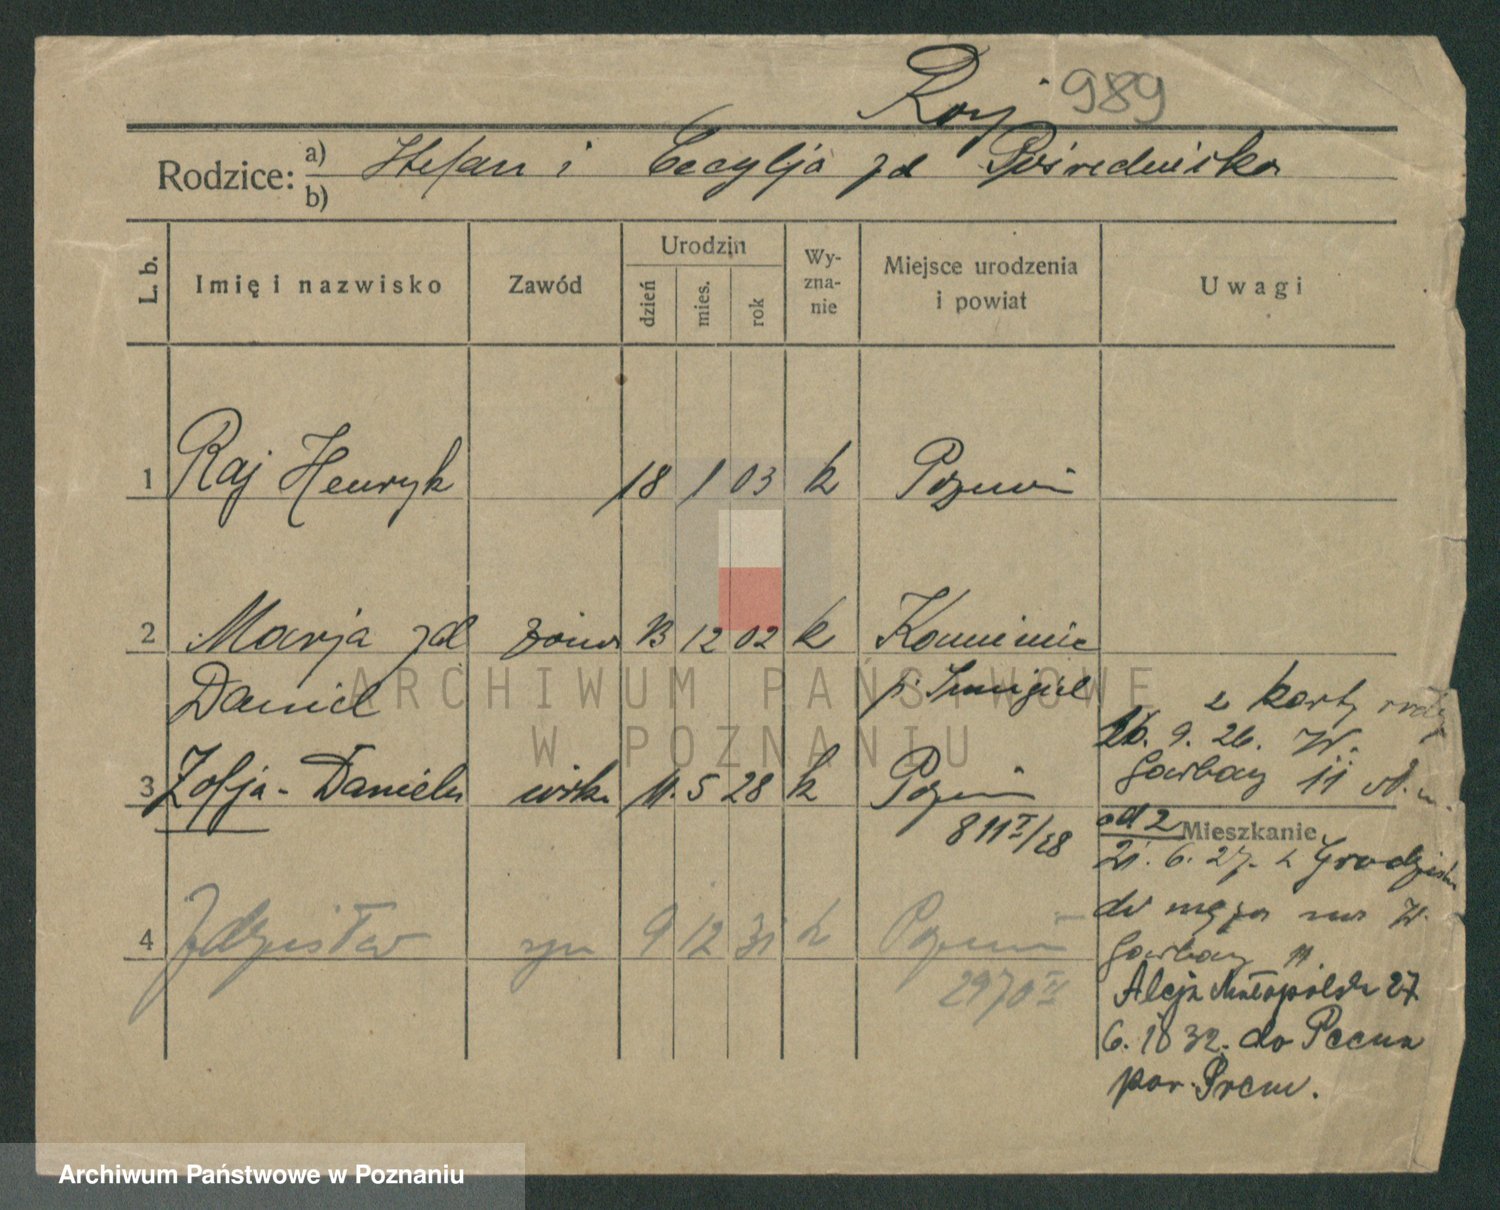 Raj 989
Rodzice: a) Stefan i Cecylja zd Pośrednicka
b)
L. b. Imię i nazwisko Zawód Urodzin dzień mies. rok Wy-zna-nie Miejsce urodzenia i powiat Uwagi
1 Raj Henryk 18 1 03 k Poznań
2 Marja zd żona 13 12 02 k Kamieniec
Daniel p. Śmigiel
z karty
26. 9. 26. W.
3 Zofja - Daniela 11. 5 28 k Poznań
Garbary 11
811 I/28
od 2 Mieszkanie
21. 6. 27. z Grodziska
do męża na W.
4 Zdzisław syn 9 12 31 k Poznań
Garbary 11.
2970 IV
Aleja Małopolska 27
6. 10 32. do
pow. Śrem.
ARCHIWUM PAŃSTWOWE
W POZNANIU
Archiwum Państwowe w Poznaniu